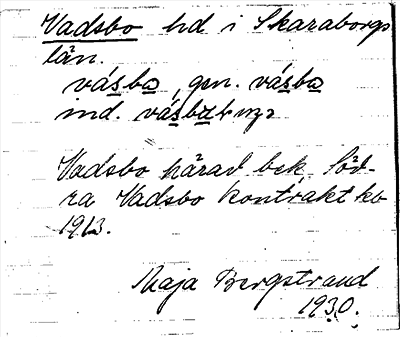 Vadsbo hd i Skaraborgs
län.
vásba, gen. vásba
ind. vásba
Vadsbo härad bek, Söd-
ra Vadsbo kontrakt kb
1913.
Maja Bergstrand
1930.